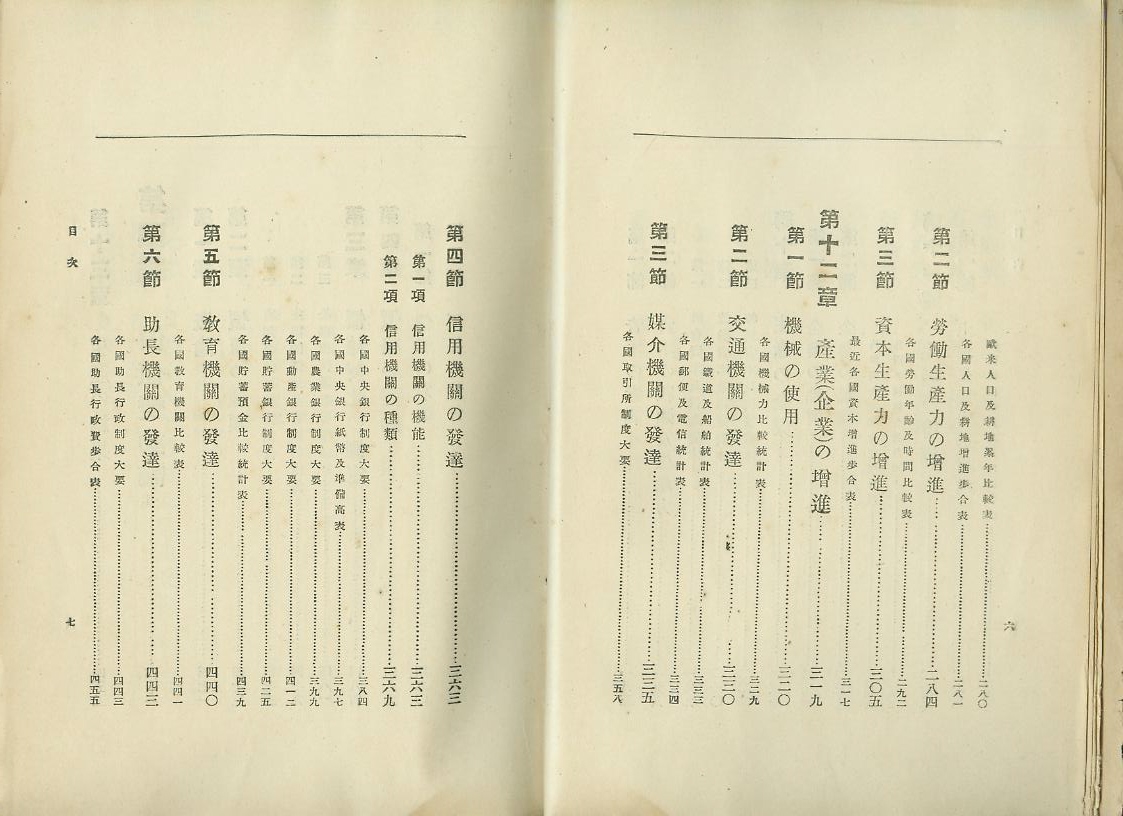 六
歐米人口及耕地累年比較表……二八〇
各國人口及耕地增進步合表……二八一
第二節 勞働生產力の增進……二八四
各國勞働年齡及時間比較表……二九二
第三節 資本生產力の增進……三〇五
最近各國資本增進步合表……三一七
第十二章 產業(企業)の增進……三一九
第一節 機械の使用……三二〇
各國機械力比較統計表……三二九
第二節 交通機關の發達……三三〇
各國鐵道及船舶統計表……三三三
各國郵便及電信統計表……三三四
第三節 媒介機關の發達……三三五
各國取引所制度大要……三五八
第四節 信用機關の發達……三六三
第一項 信用機關の機能……三六三
第二項 信用機關の種類……三六九
各國中央銀行制度大要……三八四
各國中央銀行紙幣及準備高表……三九七
各國農業銀行制度大要……三九九
各國動產銀行制度大要……四一二
各國貯蓄銀行制度大要……四二五
各國貯蓄預金比較統計表……四三九
第五節 敎育機關の發達……四四〇
各國敎育機關比較表……四四一
第六節 助長機關の發達……四四三
各國助長行政制度大要……四四三
各國助長行政費步合表……四五五
目次
七